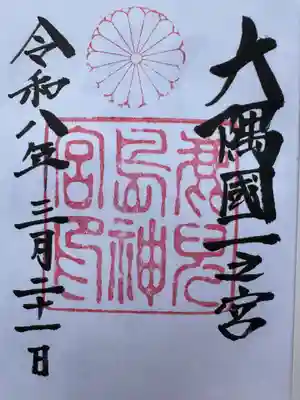 大隅國一之宮
鹿児
島神
宮印
令和八年三月二十一日